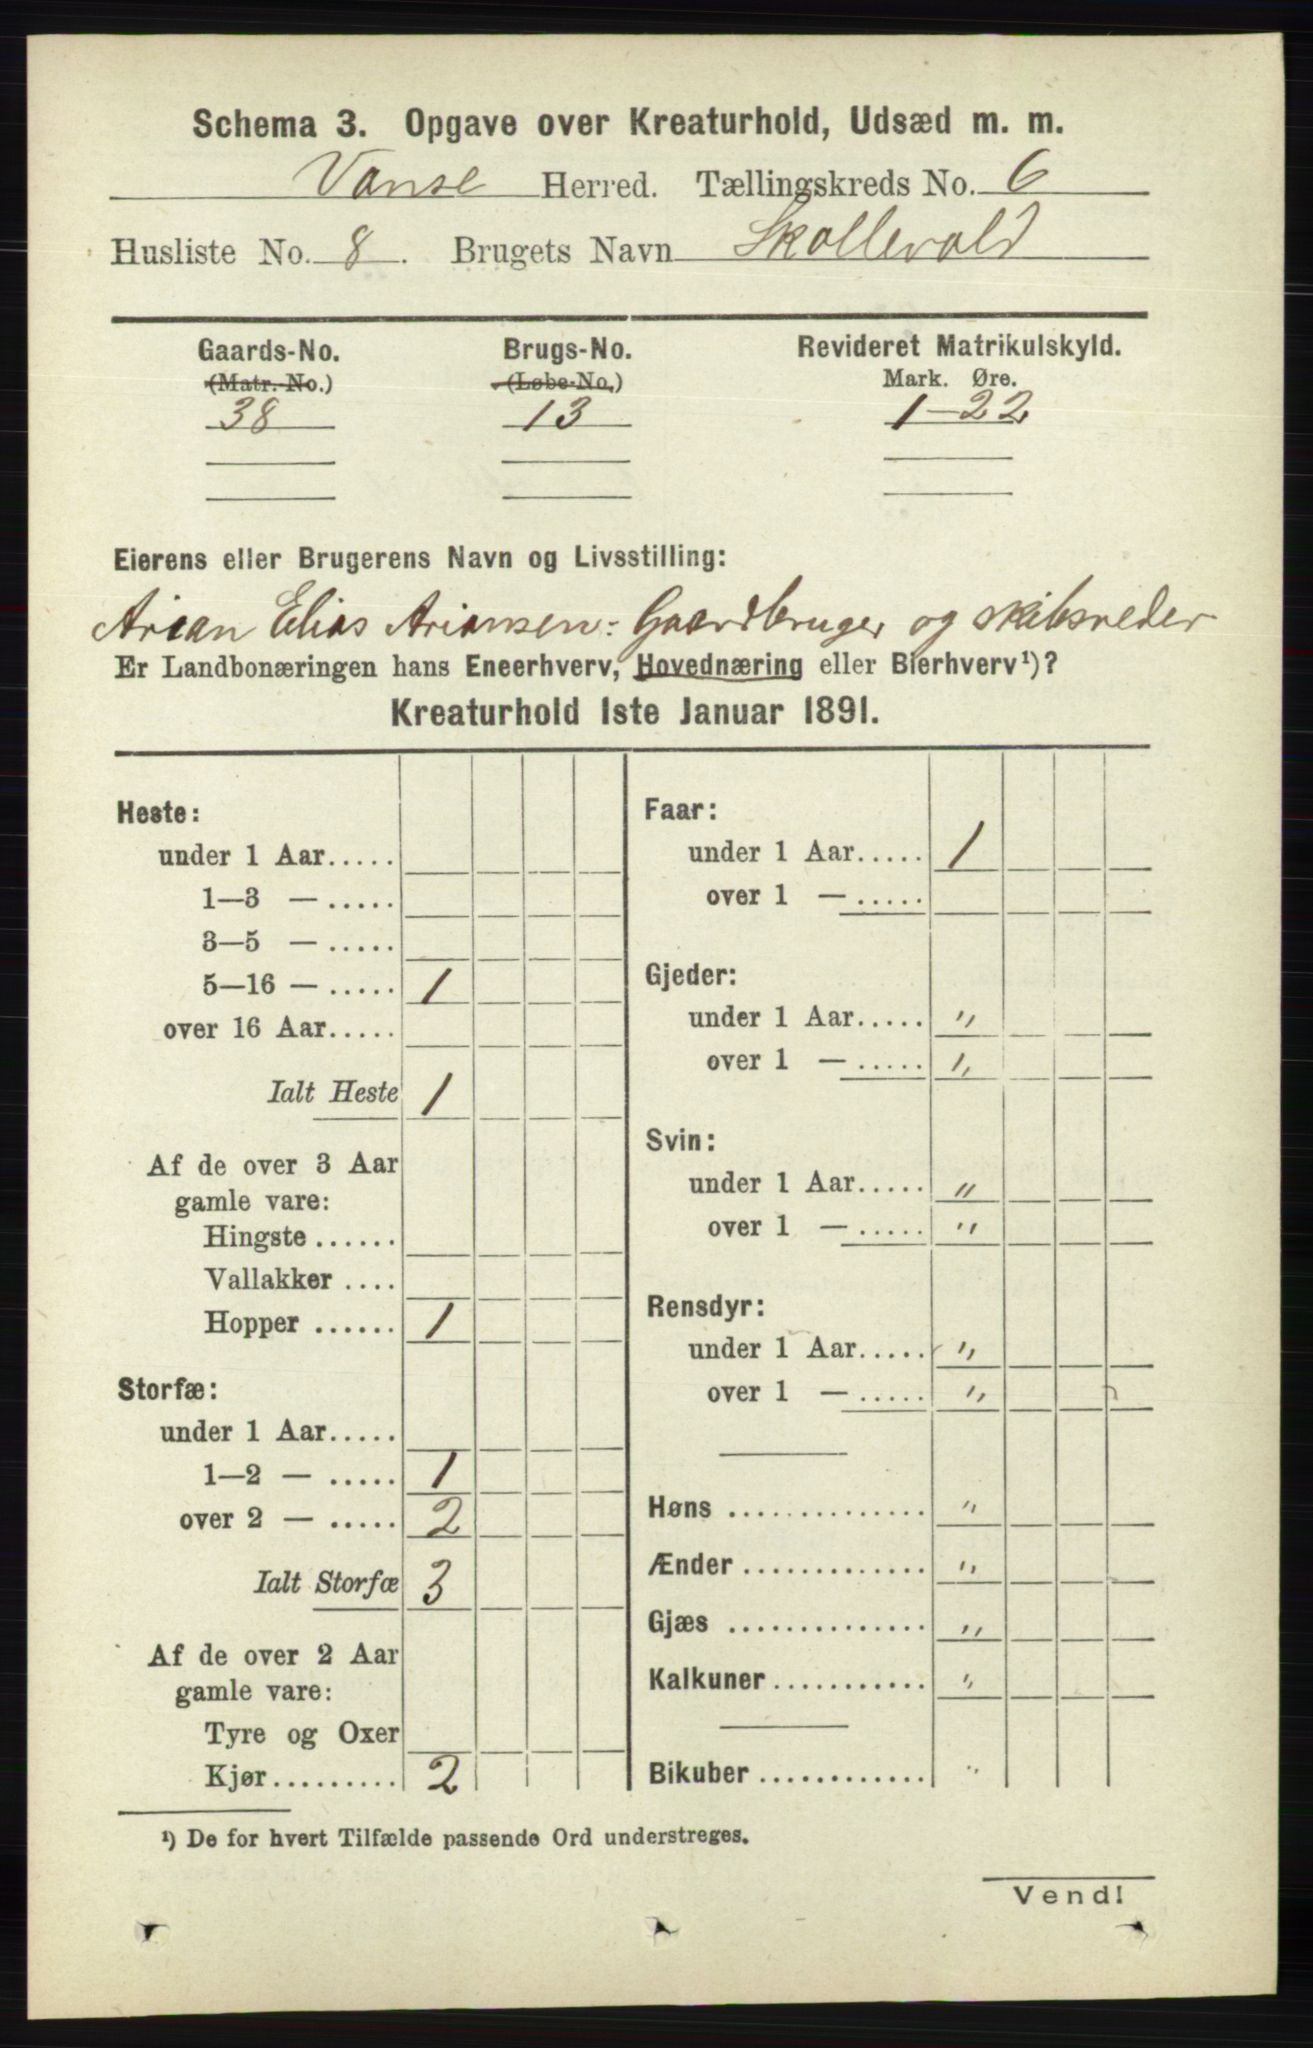 Schema 3. Opgave over Kreaturhold, Udsæd m. m.
Vanse Herred. Tællingskreds No. 6
Husliste No. 8. Brugets Navn Skollevold
Gaards-No. Brugs-No. Revideret Matrikulskyld.
(Matr.-No.) (Løbe-No.) Mark. Øre.
38 13 1-22
Eierens eller Brugerens Navn og Livsstilling:
Arian Elias Ariansen: Gaardbruger og skibsreder
Er Landbonæringen hans Eneerhverv, Hovednæring eller Bierhverv¹)?
Kreaturhold 1ste Januar 1891.
Heste:
under 1 Aar.....
1—3 — .....
3—5 — .....
5—16 — ..... 1
over 16 Aar.....
Ialt Heste 1
Af de over 3 Aar
gamle vare:
Hingste ......
Vallakker ....
Hopper ...... 1
Storfæ:
under 1 Aar.....
1—2 — ..... 1
over 2 — ..... 2
Ialt Storfæ 3
Af de over 2 Aar
gamle vare:
Tyre og Oxer
Kjør.......... 2
Faar:
under 1 Aar..... 1
over 1 — .....
Gjeder:
under 1 Aar..... "
over 1 — ..... "
Svin:
under 1 Aar..... "
over 1 — ..... "
Rensdyr:
under 1 Aar..... "
over 1 — ..... "
Høns .............. "
Ænder ............. "
Gjæs .............. "
Kalkuner ........... "
Bikuber ............ "
¹) De for hvert Tilfælde passende Ord understreges.
Vend!